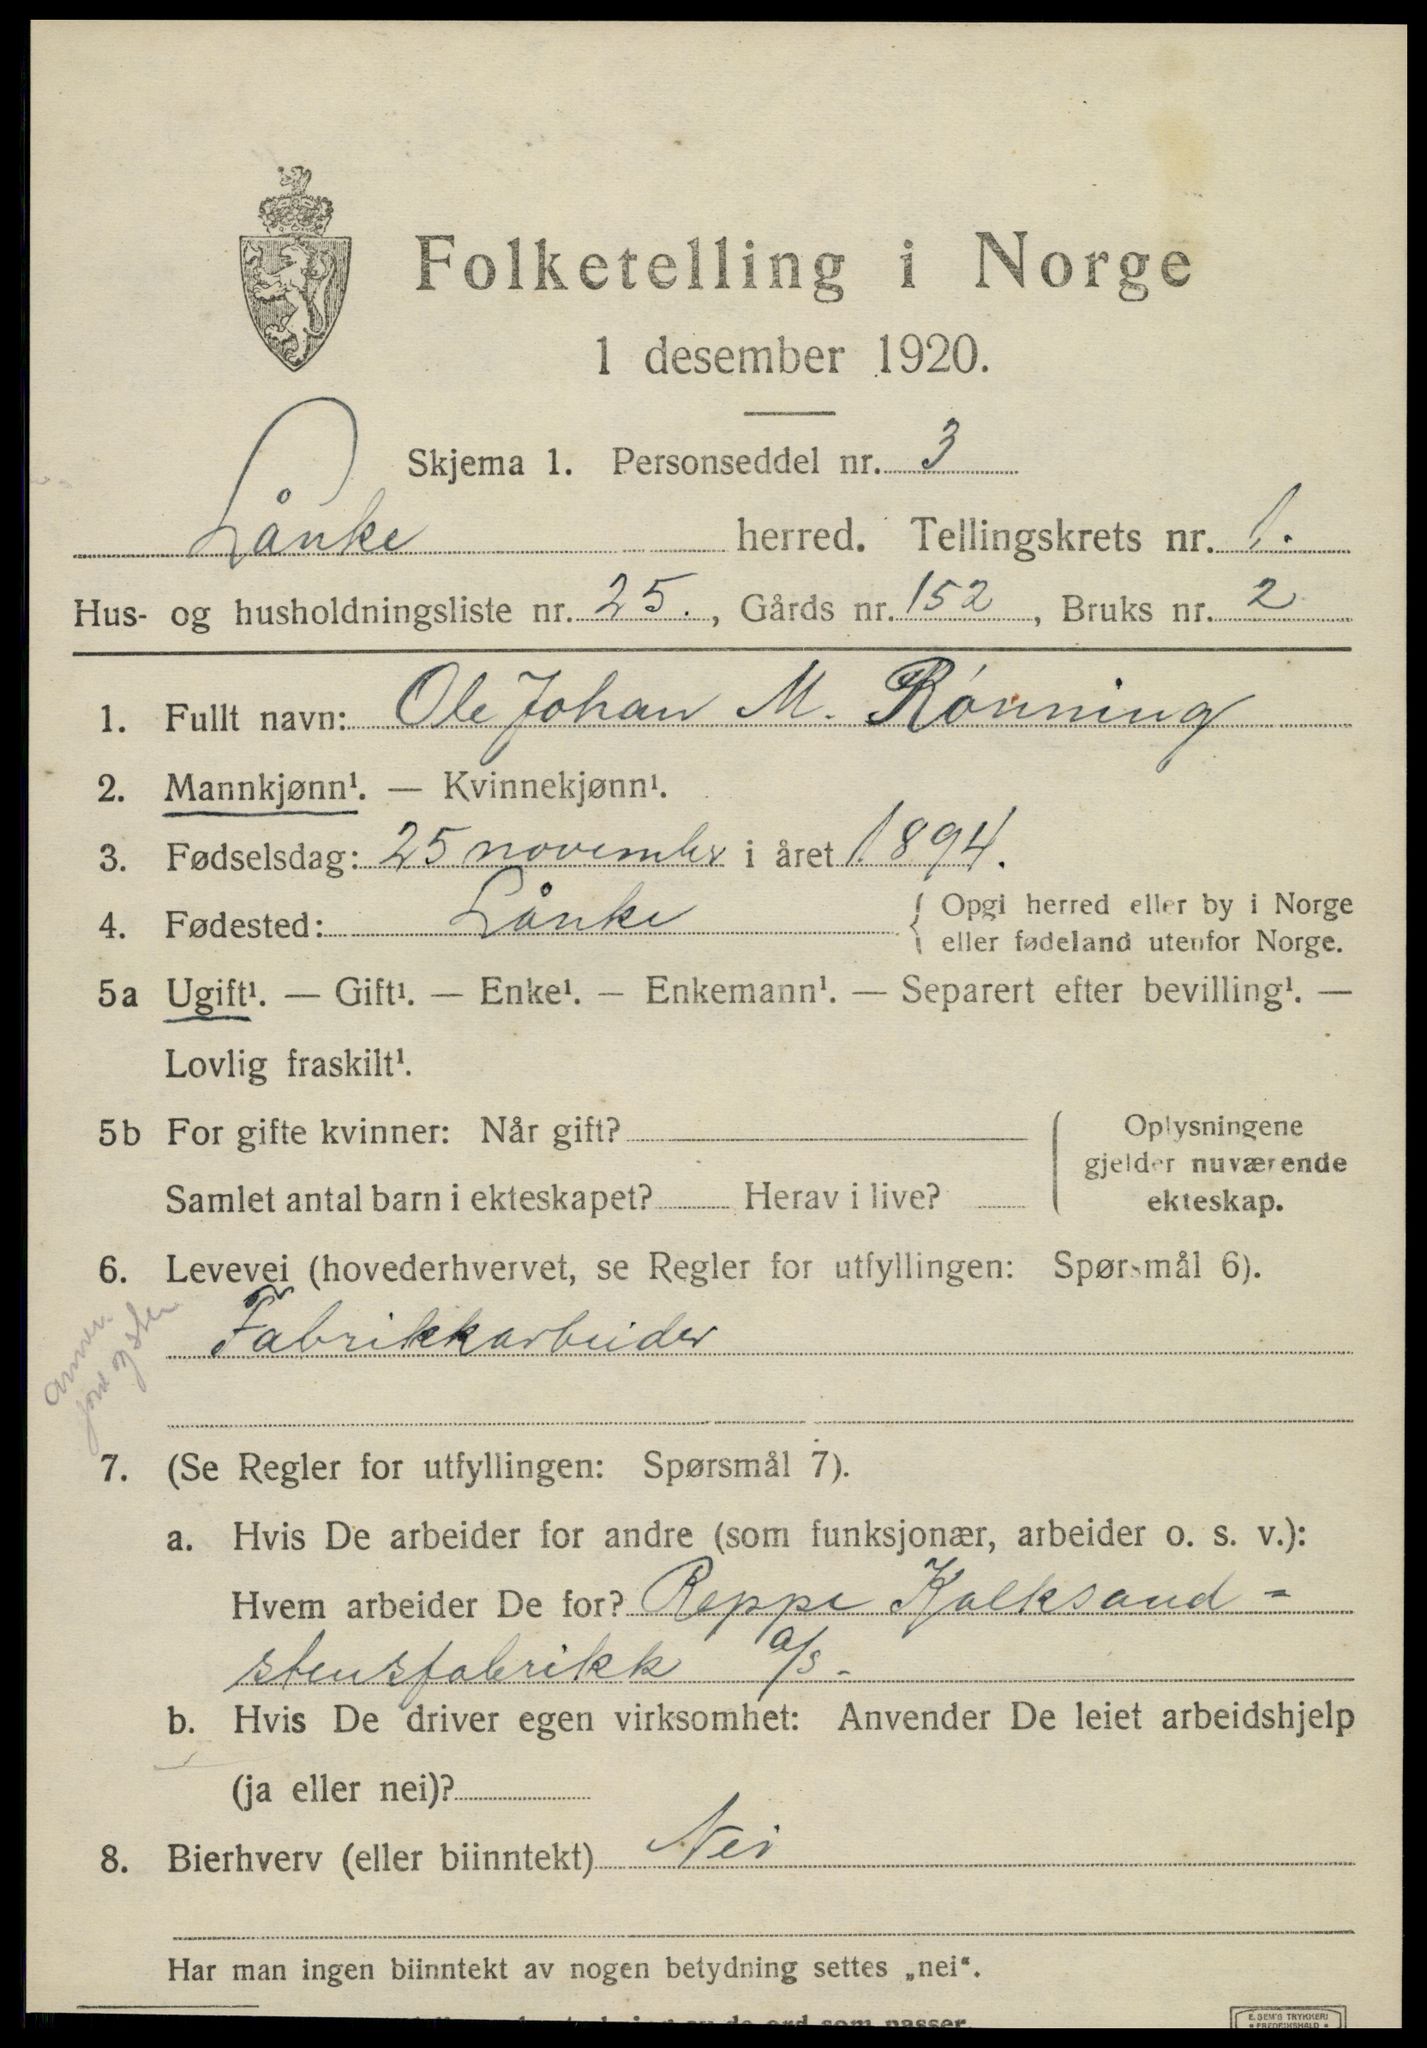 Folketelling i Norge
1 desember 1920.
Skjema 1. Personseddel nr. 3
Lånke herred. Tellingskrets nr. 1.
Hus- og husholdningsliste nr. 25., Gårds nr. 152, Bruks nr. 2
1. Fullt navn: Ole Johan M. Rønning
2. Mannkjønn¹. — Kvinnekjønn¹.
3. Fødselsdag: 25 november i året 1894.
4. Fødested: Lånke { Opgi herred eller by i Norge
eller fødeland utenfor Norge.
5a Ugift¹. — Gift¹. — Enke¹. — Enkemann¹. — Separert efter bevilling¹. —
Lovlig fraskilt¹.
5b For gifte kvinner: Når gift?
Samlet antal barn i ekteskapet? Herav i live?
Oplysningene
gjelder nuværende
ekteskap.
6. Levevei (hovederhvervet, se Regler for utfyllingen: Spørsmål 6).
Fabrikkarbeider
7. (Se Regler for utfyllingen: Spørsmål 7).
a. Hvis De arbeider for andre (som funksjonær, arbeider o. s. v.):
Hvem arbeider De for? Reppe Kalksand-
stensfabrikk a/s.
b. Hvis De driver egen virksomhet: Anvender De leiet arbeidshjelp
(ja eller nei)?
8. Bierhverv (eller biinntekt) Nei
Har man ingen biinntekt av nogen betydning settes „nei“.
E. SEM'S TRYKKERI
• FREDRIKSHALD •